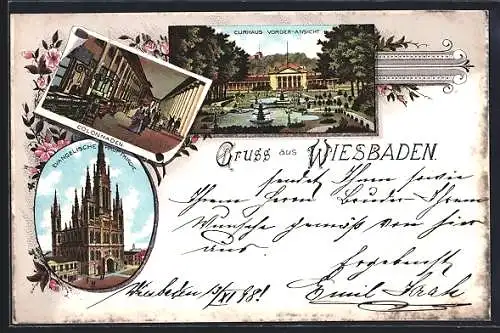 CURHAUS VORDER-ANSICHT
COLONNADEN
EVANGELISCHE HAUPTKIRCHE
Gruss aus WIESBADEN.
sendet Ihnen sowie
Ihrem Herrn Bruder Ihrem
Wunsche gemäß von hier
aus.
Ergebenst
Wiesbaden 98!
Emil